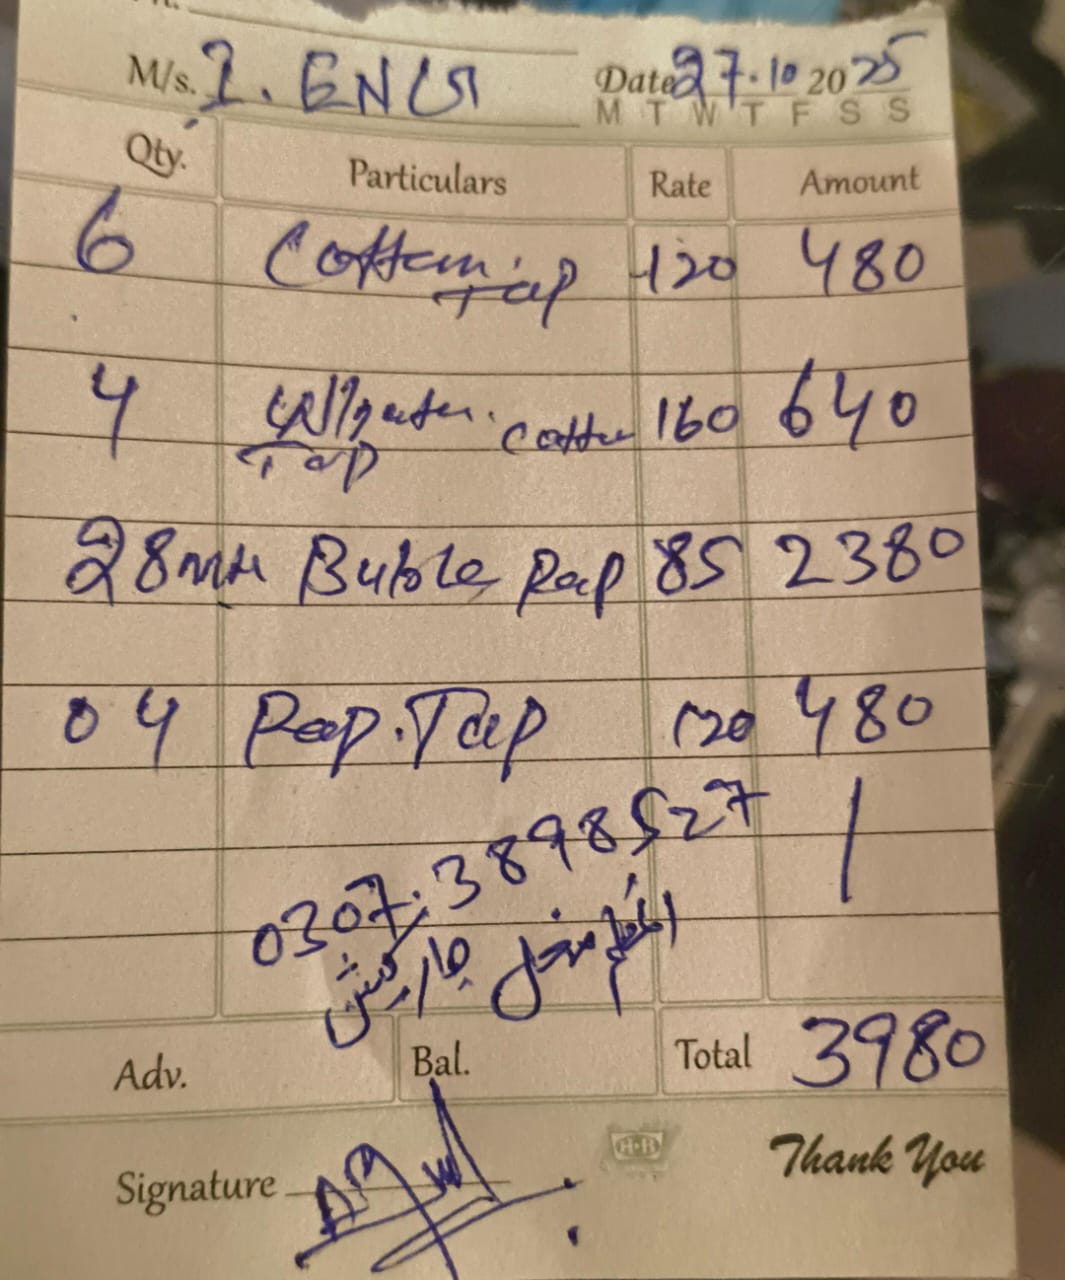 M/s. I. ENG Date 27.10 2025
M T W T F S S
Qty. Particulars Rate Amount
6 Cottam Tap 120 480
4 cotton 160 640
Tap
28 Buble Rap 85 2380
04 Pap. Tap 120 480
0307.3898527
Adv. Bal. Total 3980
Signature
H·B
Thank You